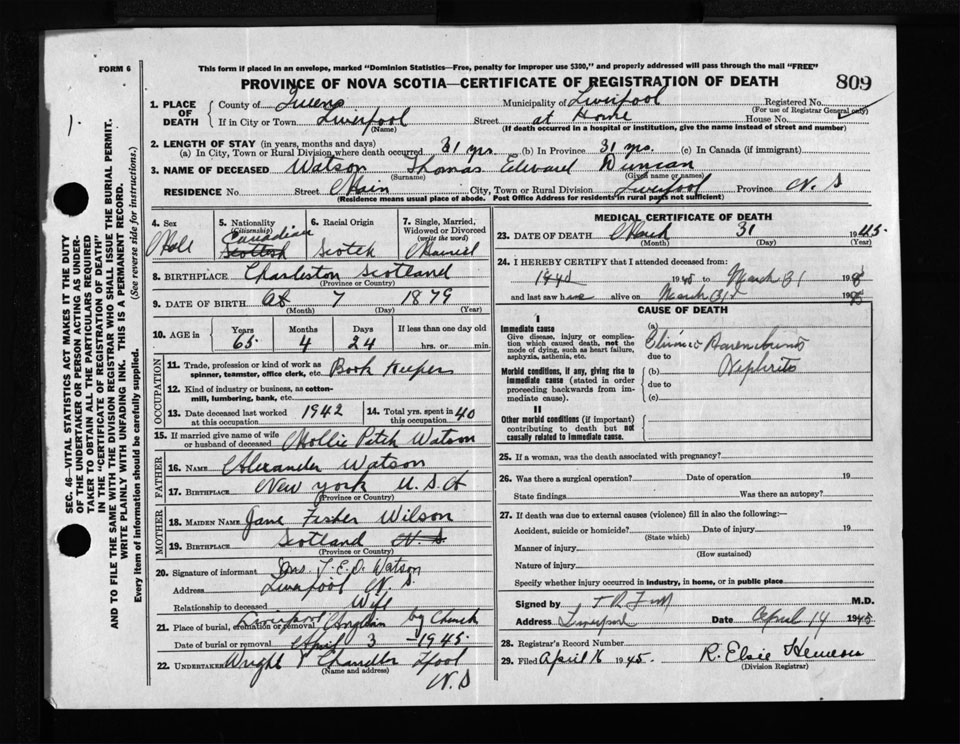 FORM 6
This form if placed in an envelope, marked "Dominion Statistics—Free, penalty for improper use $300," and properly addressed will pass through the mail "FREE"
PROVINCE OF NOVA SCOTIA—CERTIFICATE OF REGISTRATION OF DEATH
809
1. PLACE OF DEATH County of Queens Municipality of Liverpool Registered No.
(For use of Registrar General only)
If in City or Town Liverpool Street at Home House No.
(Name) (If death occurred in a hospital or institution, give the name instead of street and number)
2. LENGTH OF STAY (in years, months and days)
(a) In City, Town or Rural Division where death occurred 31 yrs. (b) In Province 31 yrs. (c) In Canada (if immigrant)
3. NAME OF DECEASED Watson Thomas Edward Duncan
(Surname) (Given name or names)
RESIDENCE No Street Main City, Town or Rural Division Liverpool Province N. S
(Residence means usual place of abode. Post Office Address for residents in rural parts not sufficient)
4. Sex Male
5. Nationality (Citizenship) Canadian Scottish
6. Racial Origin Scotch
7. Single, Married, Widowed or Divorced (write the word) Married
8. BIRTHPLACE Charleston Scotland
(Province or Country)
9. DATE OF BIRTH 7 1879
(Month) (Day) (Year)
10. AGE in Years 65 Months 4 Days 24 If less than one day old hrs. or min.
OCCUPATION
11. Trade, profession or kind of work as spinner, teamster, office clerk, etc. Book Keeper
12. Kind of industry or business, as cotton-mill, lumbering, bank, etc.
13. Date deceased last worked at this occupation 1942
14. Total yrs. spent in this occupation 40
15. If married give name of wife or husband of deceased Mollie Watson
FATHER
16. NAME Alexander Watson
17. BIRTHPLACE New York U. S. A
(Province or Country)
MOTHER
18. MAIDEN NAME Jane Fisher Wilson
19. BIRTHPLACE Scotland N. S.
(Province or Country)
20. Signature of informant Mrs. T. E. D. Watson
Address Liverpool N. S.
Relationship to deceased Wife
21. Place of burial, cremation or removal Liverpool Anglican Church
Date of burial or removal April 3 - 1945.
22. UNDERTAKER Wright & Chandler L'pool
(Name and address)
N. S
MEDICAL CERTIFICATE OF DEATH
23. DATE OF DEATH March 31 1945.
(Month) (Day) (Year)
24. I HEREBY CERTIFY that I attended deceased from:
1940 to March 31 194
and last saw h alive on March 31 194
CAUSE OF DEATH
I
Immediate cause
Give disease, injury or complication which caused death, not the mode of dying, such as heart failure, asphyxia, asthenia, etc.
(a) Chronic
due to
Morbid conditions, if any, giving rise to immediate cause (stated in order proceeding backwards from immediate cause).
(b) Nephritis
due to
(c)
II
Other morbid conditions (if important) contributing to death but not causally related to immediate cause.
25. If a woman, was the death associated with pregnancy?
26. Was there a surgical operation? Date of operation 19
State findings Was there an autopsy?
27. If death was due to external causes (violence) fill in also the following:—
Accident, suicide or homicide? Date of injury 19
(State which)
Manner of injury
(How sustained)
Nature of injury
Specify whether injury occurred in industry, in home, or in public place
Signed by M.D.
Address Liverpool Date April 14 1945
28. Registrar's Record Number
29. Filed April 16 1945. R. Elsie
(Division Registrar)
SEC. 46—VITAL STATISTICS ACT MAKES IT THE DUTY
OF THE UNDERTAKER OR PERSON ACTING AS UNDER-
TAKER TO OBTAIN ALL THE PARTICULARS REQUIRED
IN THE "CERTIFICATE OF REGISTRATION OF DEATH"
AND TO FILE THE SAME WITH THE DIVISION REGISTRAR WHO SHALL ISSUE THE BURIAL PERMIT.
WRITE PLAINLY WITH UNFADING INK. THIS IS A PERMANENT RECORD.
Every item of information should be carefully supplied. (See reverse side for instructions.)